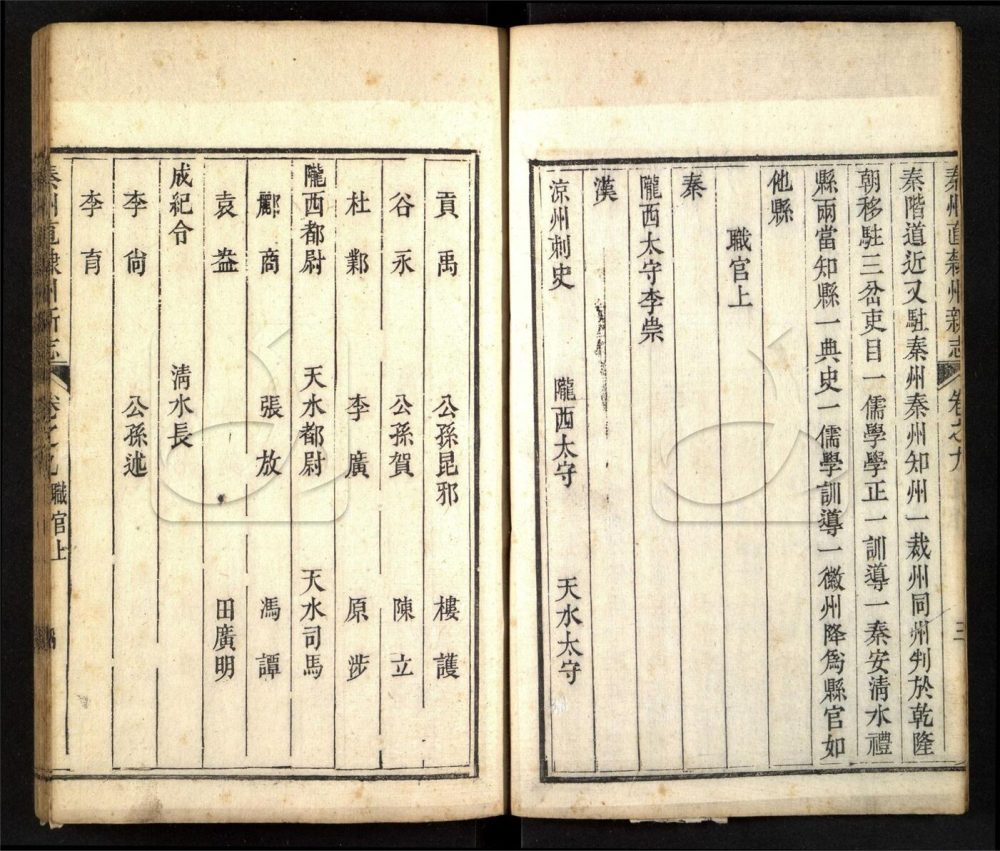 秦州直隸州新志 卷之九 三
秦階道近又駐秦州秦州知州一裁州同州判於乾隆
朝移駐三岔吏目一儒學學正一訓導一秦安清水禮
縣兩當知縣一典史一儒學訓導一徽州降爲縣官如
他縣
職官上
秦
隴西太守李崇
漢
涼州刺史 隴西太守 天水太守
貢禹 公孫昆邪 樓護
谷永 公孫賀 陳立
杜鄴 李廣 原涉
隴西都尉 天水都尉 天水司馬
酈商 張放 馮譚
袁盎 田廣明
成紀令 清水長
李尙 公孫述
李育
秦州直隸州新志 卷之九 職官上